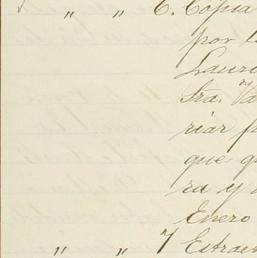 " " 6. Copia
por l
Lauri
Sra. Va
riar p
que q
ra y
Enero
" " 7 Estrac